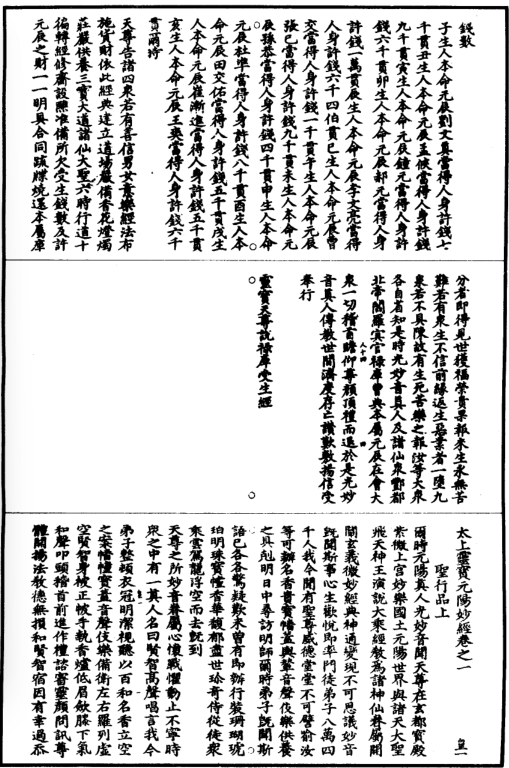 錢數
子生人本命元辰劉文真當得人身許錢七
千貫丑生人本命元辰孟侯當得人身許錢
九千貫寅生人本命元辰鍾元當得人身許
錢六千貫卯生人本命元辰郝元當得人身
許錢一萬貫辰生人本命元辰李文亮當得
人身許錢六千四伯貫巳生人本命元辰曹
交當得人身許錢一千貫午生人本命元辰
張巳當得人身許錢九千貫未生人本命元
辰孫恭當得人身許錢四千貫申生人本命
元辰杜準當得人身許錢八千貫酉生人本
命元辰田交佑當得人身許錢五千貫戌生
人本命元辰崔漸進當得人身許錢五千貫
亥生人本命元辰王爽當得人身許錢六千
貫爾時
天尊告諸四衆若有善信男女意樂經法布
施貨財依此經典建立道場嚴備香花燈燭
莊嚴供養三寶大道諸仙大聖六時行道十
徧轉經修齋設醮准備所欠受生錢數及許
元辰之財一一明具合同疏牒燒還本屬庫
分者即得見世獲福榮貴果報來生永無苦
難若有衆生不信前緣返生惡業者一墮九
泉若不具陳故有生死苦樂之報汝等大衆
各自省知是時光妙音真人及諸仙衆酆都
北帝閻羅冥官祿庫曹典本屬元辰在會大
衆一切稽首瞻仰尊顏頂禮而退於是光妙
音真人傳教世間濟度存亡讚歎敷揚信受
奉行
靈寶天尊說祿庫受生經
太上靈寶元陽妙經卷之一 皇一
聖行品上
爾時元陽真人光妙音聞天尊在玄都寶殿
紫微上宮妙樂國土元陽世界與諸天大聖
飛天神王演說大乘經教為諸神仙眷屬開
闡玄義微妙經典神通變現不可思議妙音
既聞斯事心生歡悅即率門徒弟子八萬四
千人我今聞有聖尊威德堂堂不可譬喻汝
等可辦名香貴寶幡蓋與輦音聲伎樂供養
之具剋明日中尋訪明師爾時弟子既聞斯
語已各各驚疑歎未曾有即辦行裝珊瑚琥
珀明珠寶幡香華馥郁盡世珍奇侍從徒衆
乘雲駕龍浮空而去既到
天尊之所妙音眷屬心懷戰懼動止不寧時
衆之中有一真人名曰賢智高聲唱言我今
弟子整頓衣冠明潔視聽以百和名香立空
之案幡幢寶蓋音聲伎樂備衛左右羅列虛
空賢智身被正帔手執香爐低眉斂膝下氣
和聲叩頭稽首前進作禮諮審靈顏問訊尊
體闡揚法教德無損和賢智宿因有幸過忝